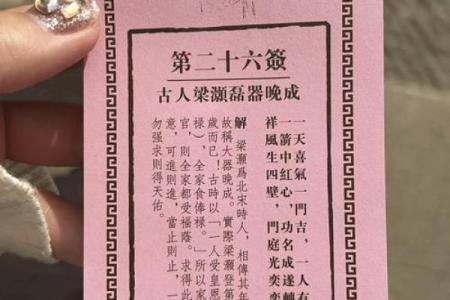 第二十六簽
古人梁灝磊器晚成
一天喜氣一門吉，一人有
一箭中紅心，功名成遂轉
祥風生四壁，門庭光奕奕
解 梁灝爲北宋時人，相傳其年
故稱大器晚成。實際梁灝登第
歲而已！古時以「一人受皇恩
祿），全家食俸祿。」所以家
官，則全家都受福蔭。求得此
意，可進則進，當止則止，一
勿强求則得天佑。